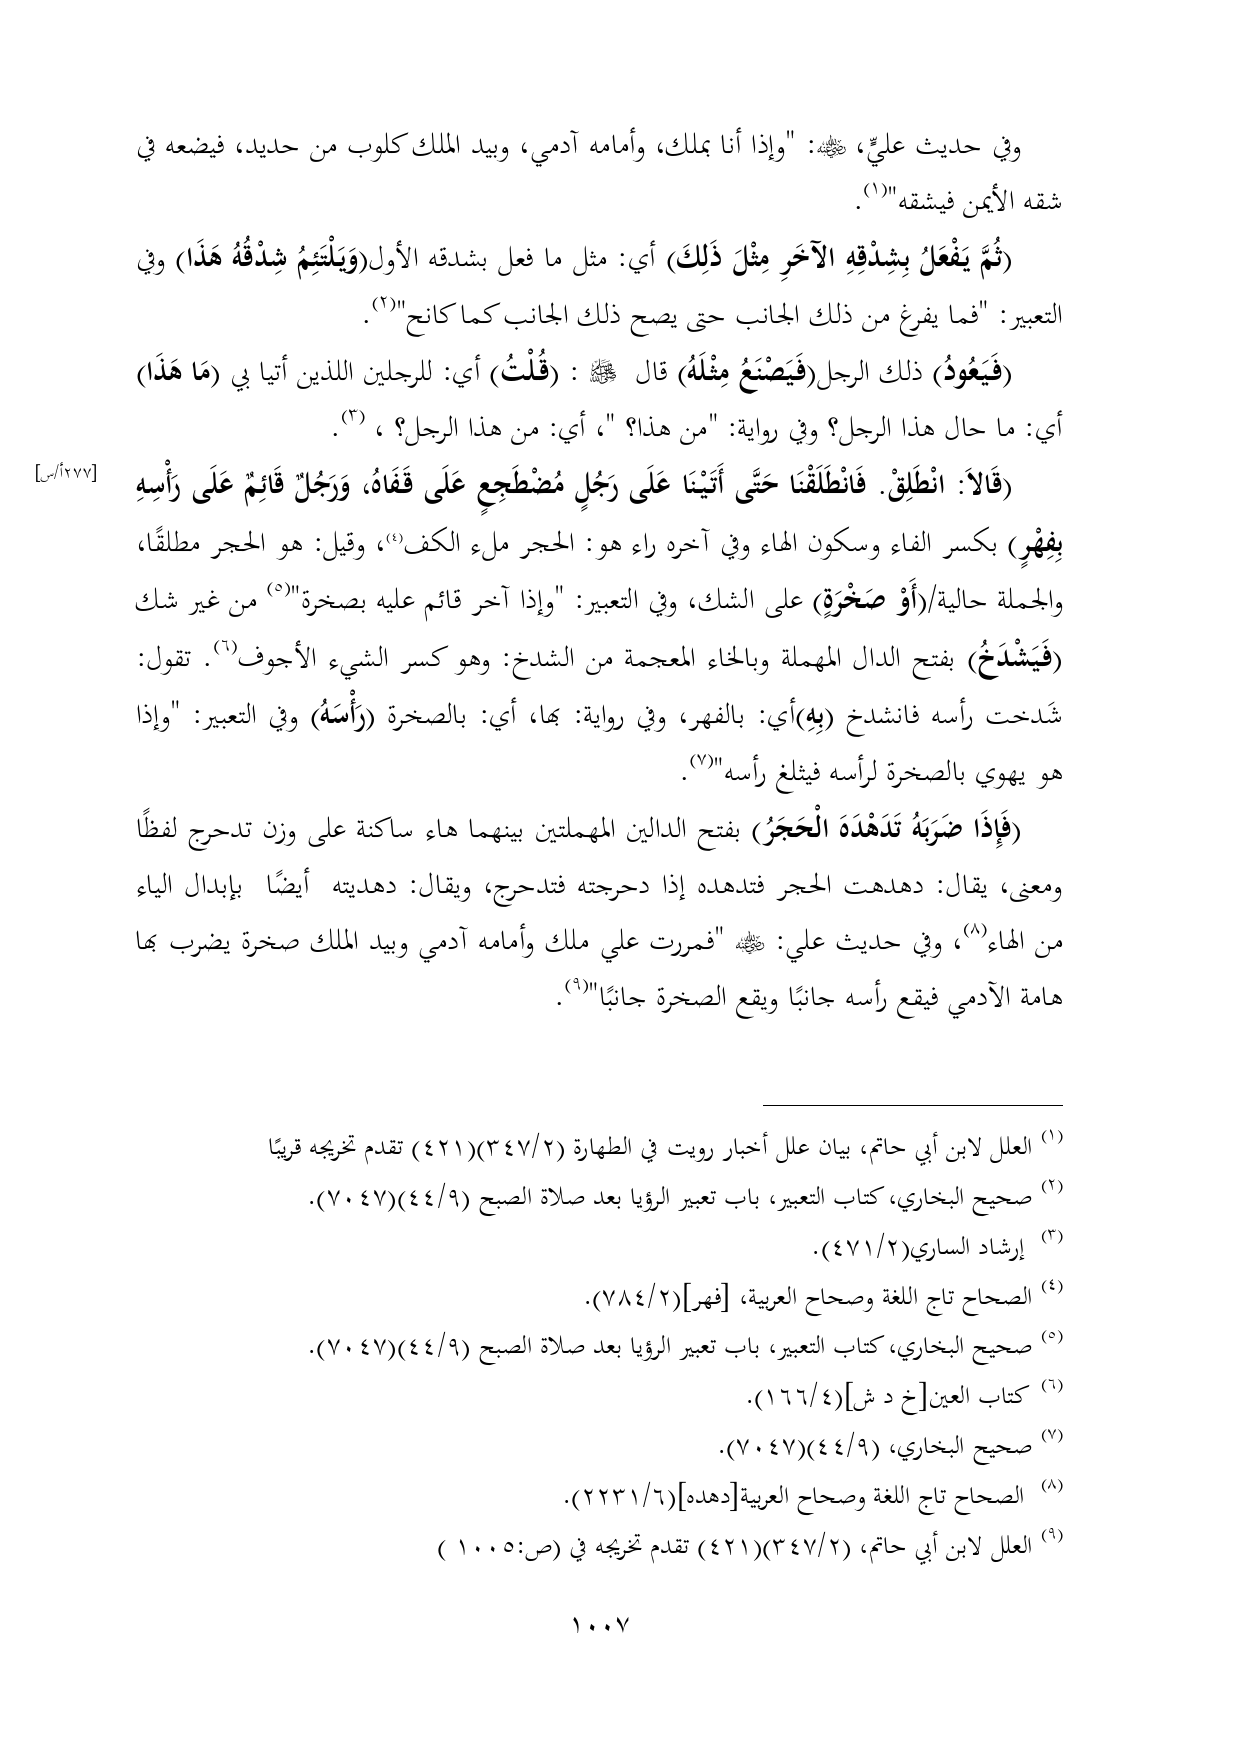 وفي حديث عليٍّ، ﵁: "وإذا أنا بملك، وأمامه آدمي، وبيد الملك كلوب من حديد، فيضعه في
شقه الأيمن فيشقه"(١).
(ثُمَّ يَفْعَلُ بِشِدْقِهِ الآخَرِ مِثْلَ ذَلِكَ) أي: مثل ما فعل بشدقه الأول(وَيَلْتَئِمُ شِدْقُهُ هَذَا) وفي
التعبير: "فما يفرغ من ذلك الجانب حتى يصح ذلك الجانب كما كانح"(٢).
(فَيَعُودُ) ذلك الرجل(فَيَصْنَعُ مِثْلَهُ) قال ﷺ : (قُلْتُ) أي: للرجلين اللذين أتيا بي (مَا هَذَا)
أي: ما حال هذا الرجل؟ وفي رواية: "من هذا؟ "، أي: من هذا الرجل؟ ، (٣).
(قَالاَ: انْطَلِقْ. فَانْطَلَقْنَا حَتَّى أَتَيْنَا عَلَى رَجُلٍ مُضْطَجِعٍ عَلَى قَفَاهُ، وَرَجُلٌ قَائِمٌ عَلَى رَأْسِهِ
[٢٧٧أ/س]
بِفِهْرٍ) بكسر الفاء وسكون الهاء وفي آخره راء هو: الحجر ملء الكف(٤)، وقيل: هو الحجر مطلقًا،
والجملة حالية/(أَوْ صَخْرَةٍ) على الشك، وفي التعبير: "وإذا آخر قائم عليه بصخرة"(٥) من غير شك
(فَيَشْدَخُ) بفتح الدال المهملة وبالخاء المعجمة من الشدخ: وهو كسر الشيء الأجوف(٦). تقول:
شَدخت رأسه فانشدخ (بِهِ)أي: بالفهر، وفي رواية: بها، أي: بالصخرة (رَأْسَهُ) وفي التعبير: "وإذا
هو يهوي بالصخرة لرأسه فيثلغ رأسه"(٧).
(فَإِذَا ضَرَبَهُ تَدَهْدَهَ الْحَجَرُ) بفتح الدالين المهملتين بينهما هاء ساكنة على وزن تدحرج لفظًا
ومعنى، يقال: دهدهت الحجر فتدهده إذا دحرجته فتدحرج، ويقال: دهديته أيضًا بإبدال الياء
من الهاء(٨)، وفي حديث علي: ﵁ "فمررت علي ملك وأمامه آدمي وبيد الملك صخرة يضرب بها
هامة الآدمي فيقع رأسه جانبًا ويقع الصخرة جانبًا"(٩).
(١) العلل لابن أبي حاتم، بيان علل أخبار رويت في الطهارة (٣٤٧/٢)(٤٢١) تقدم تخريجه قريبًا
(٢) صحيح البخاري، كتاب التعبير، باب تعبير الرؤيا بعد صلاة الصبح (٤٤/٩)(٧٠٤٧).
(٣) إرشاد الساري(٤٧١/٢).
(٤) الصحاح تاج اللغة وصحاح العربية، [فهر](٧٨٤/٢).
(٥) صحيح البخاري، كتاب التعبير، باب تعبير الرؤيا بعد صلاة الصبح (٤٤/٩)(٧٠٤٧).
(٦) كتاب العين[خ د ش](١٦٦/٤).
(٧) صحيح البخاري، (٤٤/٩)(٧٠٤٧).
(٨) الصحاح تاج اللغة وصحاح العربية[دهده](٢٢٣١/٦).
(٩) العلل لابن أبي حاتم، (٣٤٧/٢)(٤٢١) تقدم تخريجه في (ص:١٠٠٥ )
١٠٠٧